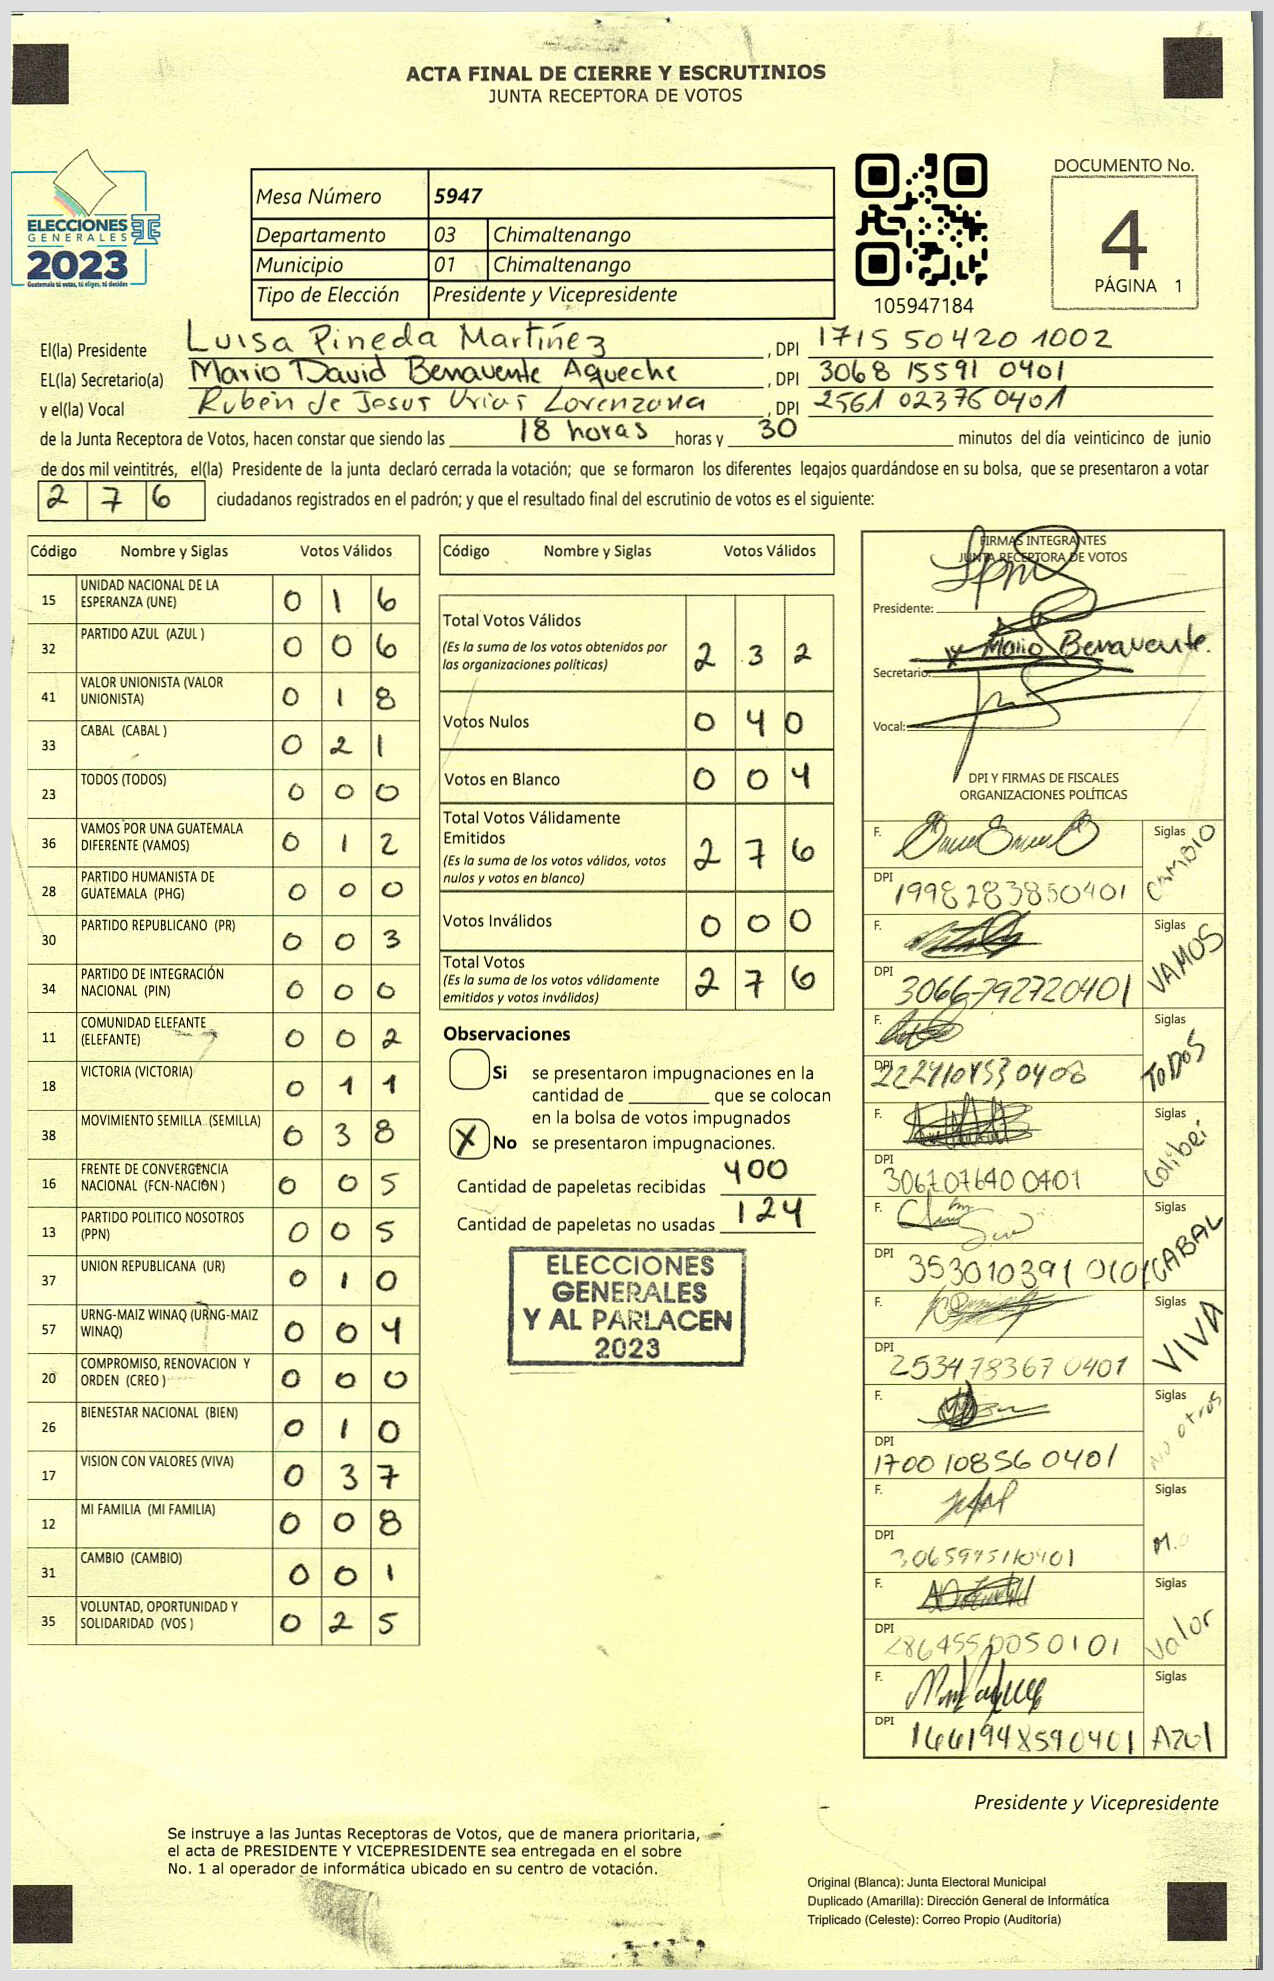 ACTA FINAL DE CIERRE Y ESCRUTINIOS
JUNTA RECEPTORA DE VOTOS
ELECCIONES
GENERALES
2023
Guatemala tú votas, tú eliges, tú decides
Mesa Número 5947
Departamento 03 Chimaltenango
Municipio 01 Chimaltenango
Tipo de Elección Presidente y Vicepresidente
105947184
DOCUMENTO No.
4
PÁGINA 1
El(la) Presidente Luisa Pineda Martínez, DPI 1715 50420 1002
EL(la) Secretario(a) Mario David Benavente Aqueche, DPI 3068 15591 0401
y el(la) Vocal Rubén de Jesus Urias Lorenzana, DPI 2561 02376 0401
de la Junta Receptora de Votos, hacen constar que siendo las 18 horas horas y 30 minutos del día veinticinco de junio
de dos mil veintitrés, el(la) Presidente de la junta declaró cerrada la votación; que se formaron los diferentes legajos quardándose en su bolsa, que se presentaron a votar
2 7 6 ciudadanos registrados en el padrón; y que el resultado final del escrutinio de votos es el siguiente:
Código Nombre y Siglas Votos Válidos
15 UNIDAD NACIONAL DE LA ESPERANZA (UNE) 0 1 6
32 PARTIDO AZUL (AZUL ) 0 0 6
41 VALOR UNIONISTA (VALOR UNIONISTA) 0 1 8
33 CABAL (CABAL ) 0 2 1
23 TODOS (TODOS) 0 0 0
36 VAMOS POR UNA GUATEMALA DIFERENTE (VAMOS) 0 1 2
28 PARTIDO HUMANISTA DE GUATEMALA (PHG) 0 0 0
30 PARTIDO REPUBLICANO (PR) 0 0 3
34 PARTIDO DE INTEGRACIÓN NACIONAL (PIN) 0 0 0
11 COMUNIDAD ELEFANTE (ELEFANTE) 0 0 2
18 VICTORIA (VICTORIA) 0 1 1
38 MOVIMIENTO SEMILLA (SEMILLA) 0 3 8
16 FRENTE DE CONVERGENCIA NACIONAL (FCN-NACION ) 0 0 5
13 PARTIDO POLITICO NOSOTROS (PPN) 0 0 5
37 UNION REPUBLICANA (UR) 0 1 0
57 URNG-MAIZ WINAQ (URNG-MAIZ WINAQ) 0 0 4
20 COMPROMISO, RENOVACION Y ORDEN (CREO ) 0 0 0
26 BIENESTAR NACIONAL (BIEN) 0 1 0
17 VISION CON VALORES (VIVA) 0 3 7
12 MI FAMILIA (MI FAMILIA) 0 0 8
31 CAMBIO (CAMBIO) 0 0 1
35 VOLUNTAD, OPORTUNIDAD Y SOLIDARIDAD (VOS ) 0 2 5
Código Nombre y Siglas Votos Válidos
Total Votos Válidos 2 3 2
(Es la suma de los votos obtenidos por
las organizaciones políticas)
Votos Nulos 0 4 0
Votos en Blanco 0 0 4
Total Votos Válidamente
Emitidos 2 7 6
(Es la suma de los votos válidos, votos
nulos y votos en blanco)
Votos Inválidos 0 0 0
Total Votos 2 7 6
(Es la suma de los votos válidamente
emitidos y votos inválidos)
Observaciones
Si se presentaron impugnaciones en la
cantidad de ________ que se colocan
en la bolsa de votos impugnados
X No se presentaron impugnaciones.
Cantidad de papeletas recibidas 400
Cantidad de papeletas no usadas 124
ELECCIONES
GENERALES
Y AL PARLACEN
2023
FIRMAS INTEGRANTES
JUNTA RECEPTORA DE VOTOS
Presidente:
Secretario: Mario Benavente.
Vocal:
DPI Y FIRMAS DE FISCALES
ORGANIZACIONES POLÍTICAS
F. Siglas CAMBIO
DPI 1998 283850401
F. Siglas VAMOS
DPI 3066792720401
F. Siglas TODOS
DPI
F. Siglas Colibei
DPI
F. Siglas CABAL
DPI 353010391 0101
F. Siglas VIVA
DPI 253478367 0401
F. Siglas
DPI 1700 10856 0401
F. Siglas
DPI
F. Siglas Valor
DPI 286455 0050101
F. Siglas Azul
DPI
Presidente y Vicepresidente
Se instruye a las Juntas Receptoras de Votos, que de manera prioritaria,
el acta de PRESIDENTE Y VICEPRESIDENTE sea entregada en el sobre
No. 1 al operador de informática ubicado en su centro de votación.
Original (Blanca): Junta Electoral Municipal
Duplicado (Amarilla): Dirección General de Informática
Triplicado (Celeste): Correo Propio (Auditoría)